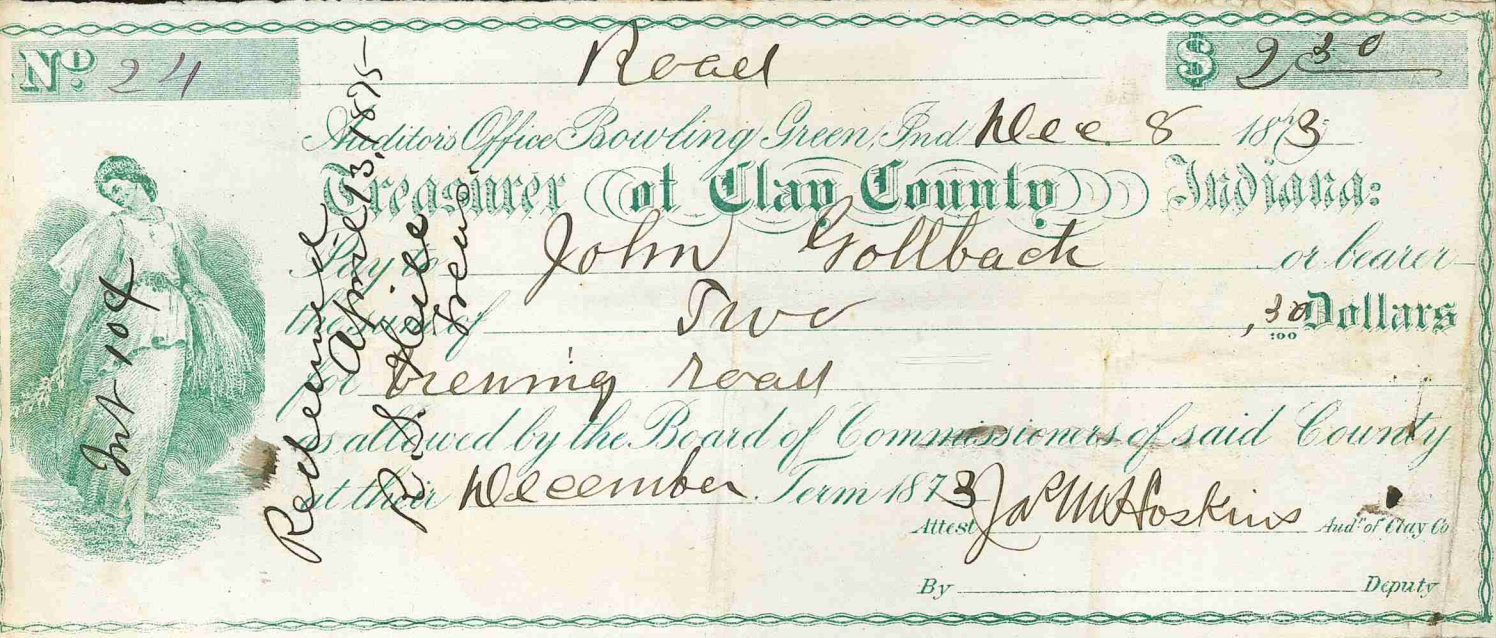 No. 24
Road
$ 2 30
Auditors Office Bowling Green, Ind. Dec 8 1873
Treasurer of Clay County Indiana:
Pay to John Gollback or bearer
the sum of Two ,30/100 Dollars
for viewing road
as allowed by the Board of Commissioners of said County
at their December Term 1873
Attest Jas M Hoskins Aud.r of Clay Co
By Deputy
Redeemed
April 13, 1875
R. S. Treas.
Int 10¢